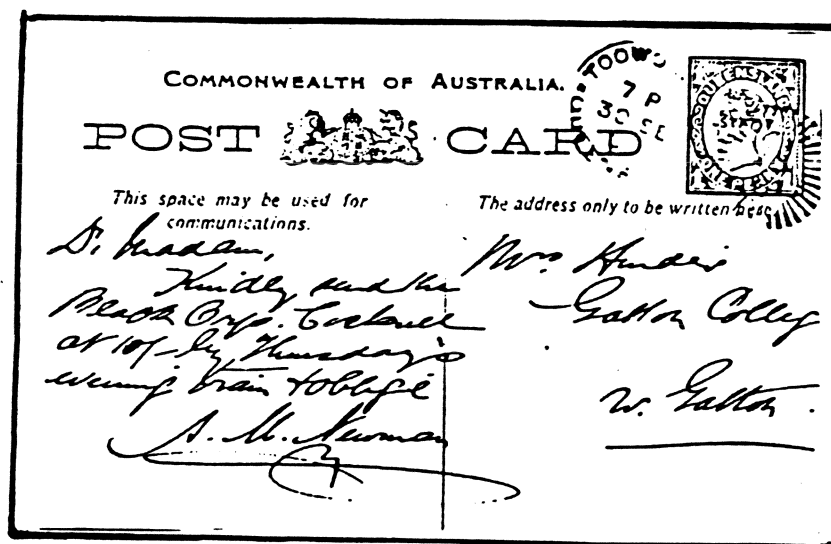 COMMONWEALTH OF AUSTRALIA.
POST CARD
TOOWO
7 P
30 SE
QUEENSLAND
ONE PENNY
This space may be used for
communications.
The address only to be written here.
D. Madam,
Kindly send the
Black Orp. Cockerel
at 10/- by Thursday's
evening train & oblige
A. M. Newman
Mrs
Gatton College
W. Gatton.